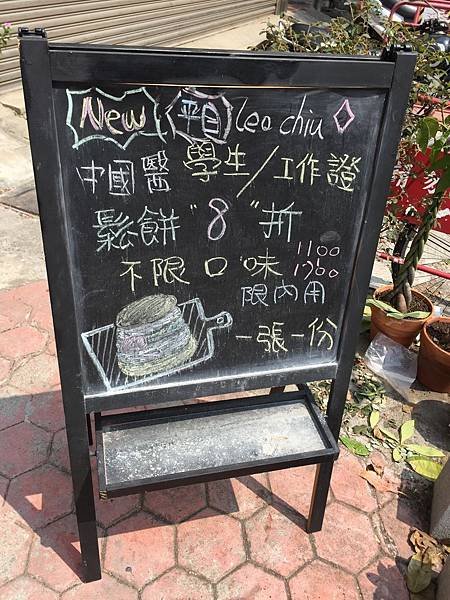 New 平日 Leo chiu
中國醫 學生/工作證
鬆餅"8"折
不限口味 1100
1760
限內用
一張一份